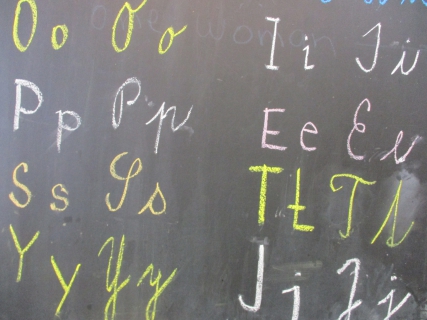 O o O o
I i I i
P p P p
E e E e
S s S s
T t T t
Y y Y y
J j J j
woman